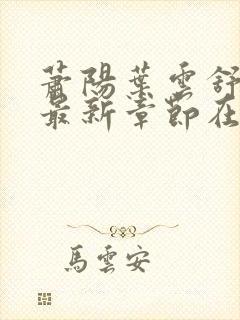 蕭陽葉雲舒
最新章節在
馬雲安